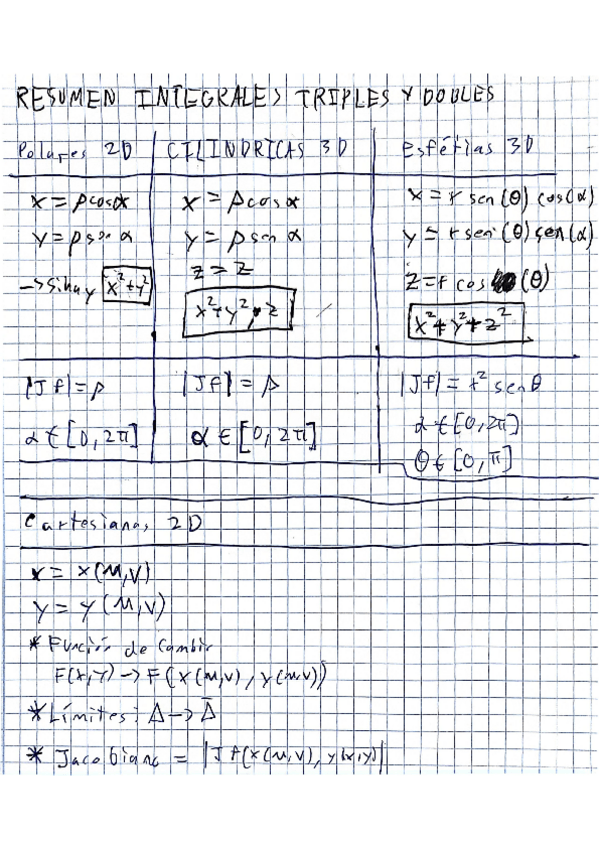 RESUMEN INTEGRALES TRIPLES Y DOBLES
Polares 2D
x = ρcosα
y = ρsen α
-> Si hay x²+y²
|Jf| = ρ
α ∈ [0, 2π]
CILINDRICAS 3D
x = ρcosα
y = ρsen α
z = z
x²+y², z
|Jf| = ρ
α ∈ [0, 2π]
Esféricas 3D
x = r sen(θ) cos(α)
y = r sen(θ) sen(α)
z = r cos (θ)
x²+y²+z²
|Jf| = r² senθ
α ∈ [0, 2π]
θ ∈ [0, π]
Cartesianas 2D
x = x(u,v)
y = y(u,v)
* Función de Cambio
F(x,y) -> F(x(u,v), y(u,v))
* Límites: Δ -> Δ̄
* Jacobiano = |Jf(x(u,v), y(x,y)|